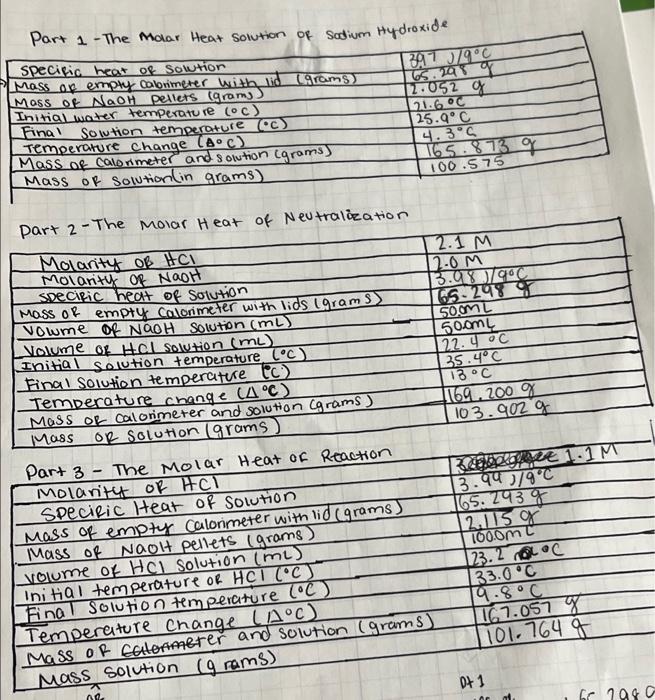 Part 1 - The Molar Heat Solution of Sodium Hydroxide
Specific heat of solution 3.97 J/g°C
Mass of empty calorimeter with lid (grams) 65.298 g
Mass of NaOH pellets (grams) 2.052 g
Initial water temperature (°C) 21.6°C
Final solution temperature (°C) 25.9°C
Temperature change (Δ°C) 4.3°C
Mass of calorimeter and solution (grams) 165.873 g
Mass of solution (in grams) 100.575
Part 2 - The Molar Heat of Neutralization
Molarity of HCl 2.1 M
Molarity of NaOH 2.0 M
Specific heat of solution 3.98 J/g°C
Mass of empty calorimeter with lids (grams) 65.298 g
Volume of NaOH solution (mL) 50.0mL
Volume of HCl solution (mL) 50.0mL
Initial solution temperature (°C) 22.4 °C
Final solution temperature (°C) 35.4°C
Temperature change (Δ°C) 13°C
Mass of calorimeter and solution (grams) 169.200 g
Mass of solution (grams) 103.902 g
Part 3 - The Molar Heat of Reaction
Molarity of HCl 1.1 M
Specific Heat of Solution 3.99 J/g°C
Mass of empty calorimeter with lid (grams) 65.293 g
Mass of NaOH pellets (grams) 2.115 g
Volume of HCl solution (mL) 100.0mL
Initial temperature of HCl (°C) 23.2 °C
Final solution temperature (°C) 33.0°C
Temperature change (Δ°C) 9.8°C
Mass of calorimeter and solution (grams) 167.057 g
Mass solution (grams) 101.764 g
Pt 1